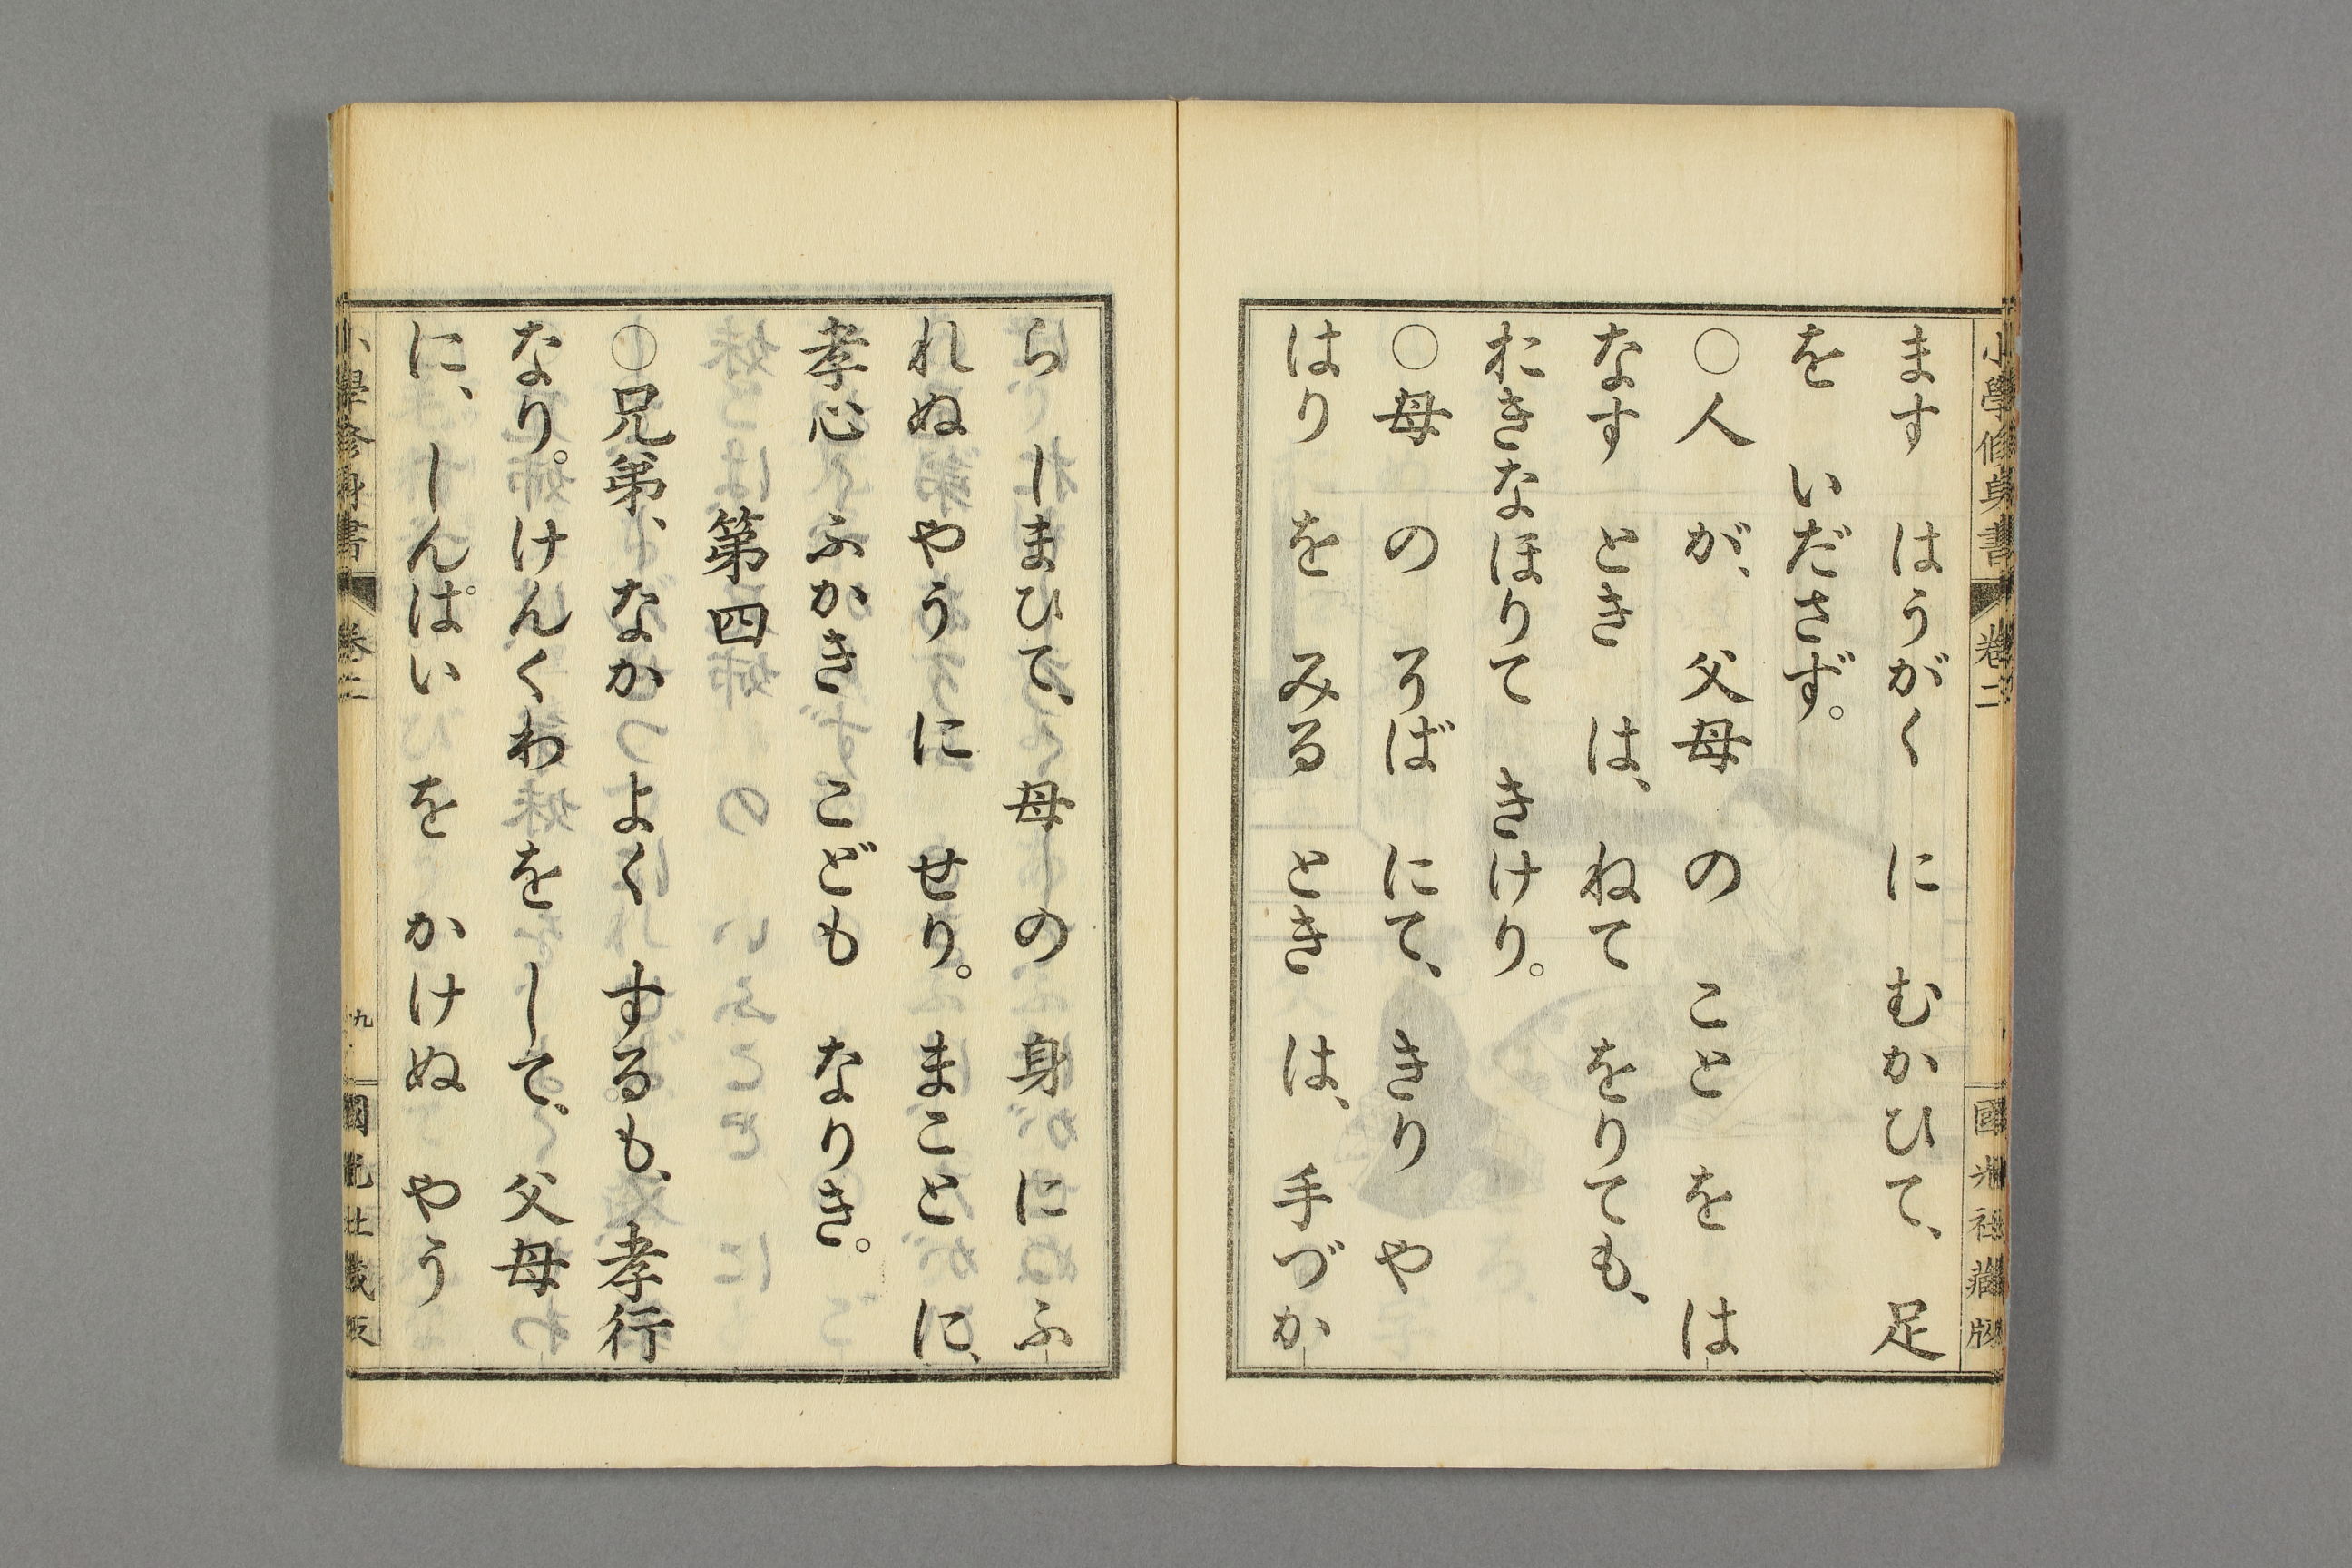 小學修身書 卷二 國光社藏版
ます はうがく に むかひて、足
を いださず。
○人 が、父母 の こと を は
なす とき は、ねて をりても、
おきなほりて きけり。
○母 の そば にて、きり や
はり を みる とき は、手づか
ら しまひて、母 の 身 に ふ
れぬ やう に せり。まこと に、
孝心 ふかき こども なりき。
第四
○兄弟、なか よく するも、孝行
なり。けんくわ を して、父母
に、しんぱい を かけぬ やう
小學修身書 卷二 九 國光社藏版